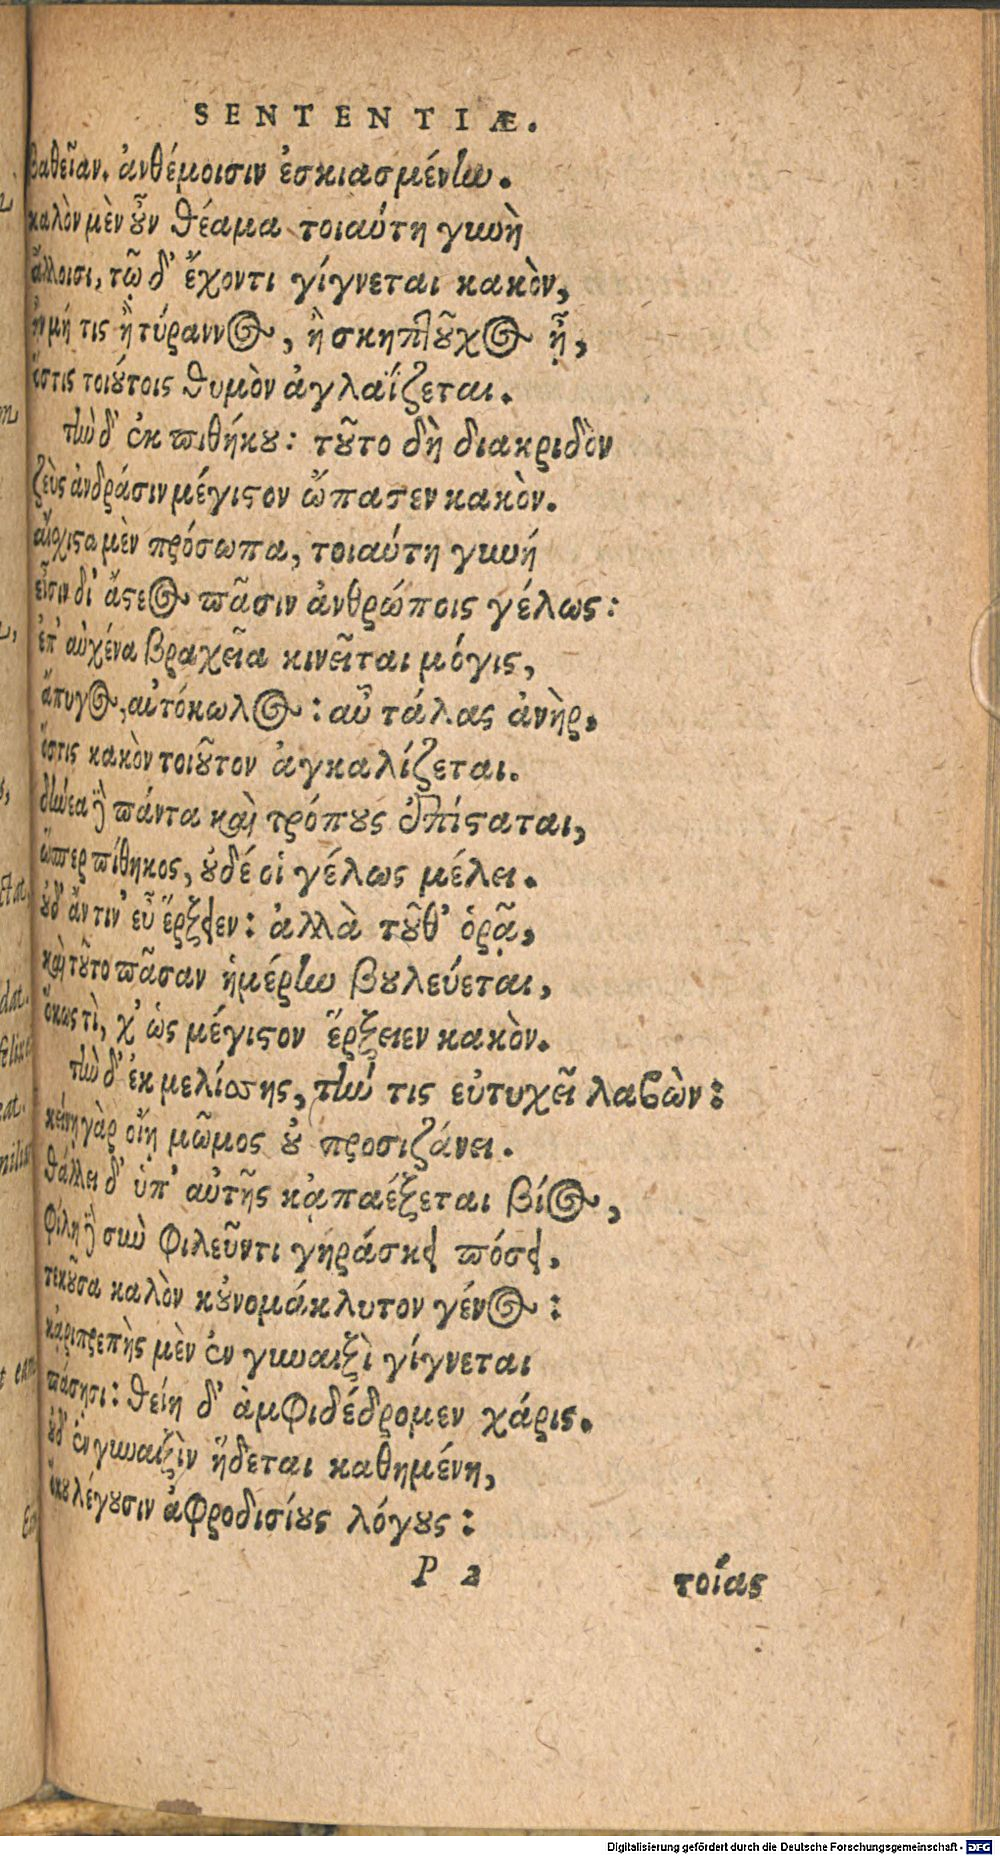 SENTENTIÆ.
βαθεῖαν. ἀνθέμοισιν ἐσκιασμένην.
καλὸν μὲν οὖν θέαμα τοιαύτη γυνὴ
ἄλλοισι, τῷ δ' ἔχοντι γίγνεται κακὸν,
ἢν μή τις ἢ τύραννος, ἢ σκηπτοῦχος ᾖ,
ὅστις τοιούτοις θυμὸν ἀγλαΐζεται.
τὴν δ' ἐκ πιθήκου: τοῦτο δὴ διακριδὸν
ζεὺς ἀνδράσιν μέγιστον ὤπασεν κακὸν.
αἴσχιστα μὲν πρόσωπα, τοιαύτη γυνή
εἶσιν δι' ἄστεος πᾶσιν ἀνθρώποις γέλως:
ἐπ' αὐχένα βραχεῖα κινεῖται μόγις,
ἄπυγος, αὐτόκωλος: αὖ τάλας ἀνὴρ,
ὅστις κακὸν τοιοῦτον ἀγκαλίζεται.
δήνεα δὲ πάντα καὶ τρόπους ἐπίσταται,
ὥσπερ πίθηκος, οὐδέ οἱ γέλως μέλει.
οὐδ' ἄν τιν' εὖ ἔρξειεν: ἀλλὰ τοῦθ' ὁρᾷ,
καὶ τοῦτο πᾶσαν ἡμέρην βουλεύεται,
ὅκως τὶ, χ' ὡς μέγιστον ἔρξειεν κακὸν.
τὴν δ' ἐκ μελίσσης, τήν τις εὐτυχεῖ λαβὼν:
κείνῃ γὰρ οἴῃ μῶμος οὐ προσιζάνει.
θάλλει δ' ὑπ' αὐτῆς κἀπαέξεται βίος,
φίλη δὲ σὺν φιλεῦντι γηράσκει πόσει,
τεκοῦσα καλὸν κοὐνομάκλυτον γένος:
κἀριπρεπὴς μὲν ἐν γυναιξὶ γίγνεται
πάσῃσι: θείη δ' ἀμφιδέδρομεν χάρις.
οὐδ' ἐν γυναιξὶν ἥδεται καθημένη,
ὅκου λέγουσιν ἀφροδισίους λόγους:
P 2
τοίας
Digitalisierung gefördert durch die Deutsche Forschungsgemeinschaft - DFG